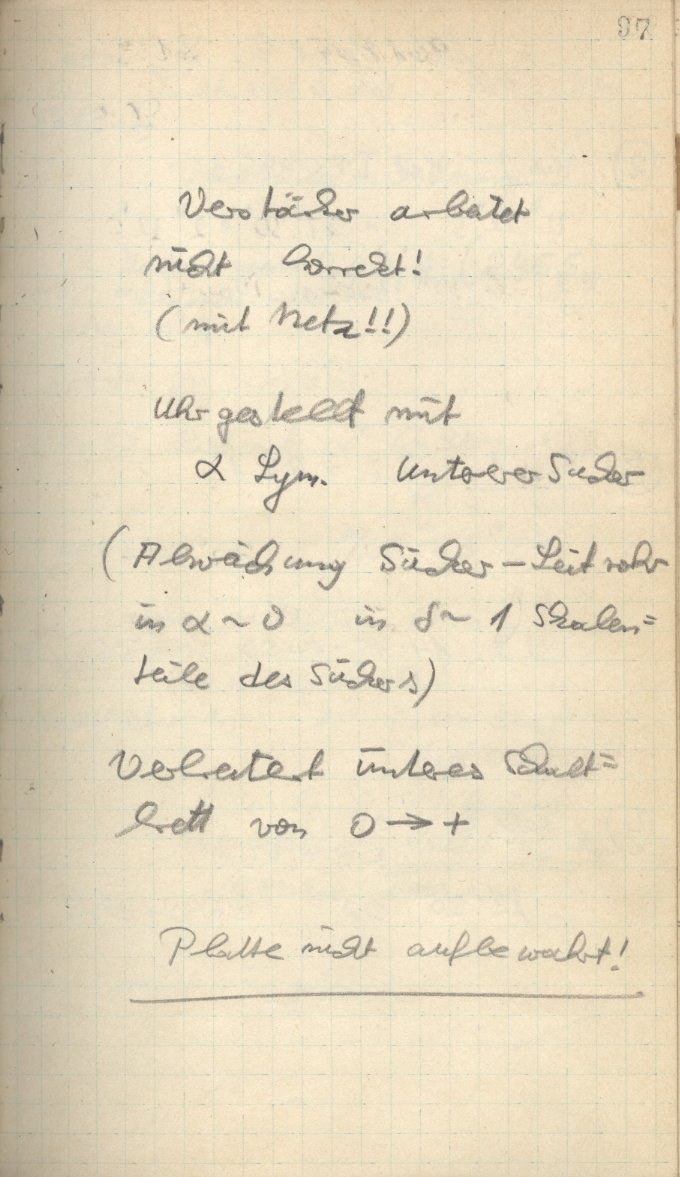 97
Verstärker arbeitet
nicht korrekt!
(mit Netz!!)
Uhr gestellt mit
α Lym. unterer Sucher
(Abweichung Sucher-Leitrohr
in α ~ 0 in δ ~ 1 Skalen=
teile des Suchers)
unteres Schalt=
brett von 0 → +
Platte nicht aufbewahrt!